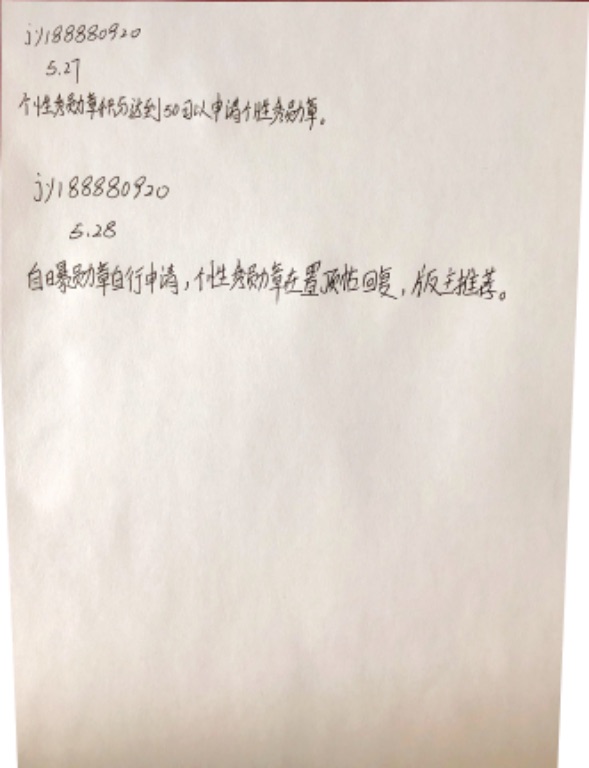 jy188880920
5.27
个性秀勋章积分达到50可以申请个性秀勋章。
jy188880920
5.28
自曝勋章自行申请,个性秀勋章在置顶帖回复,版主推荐。